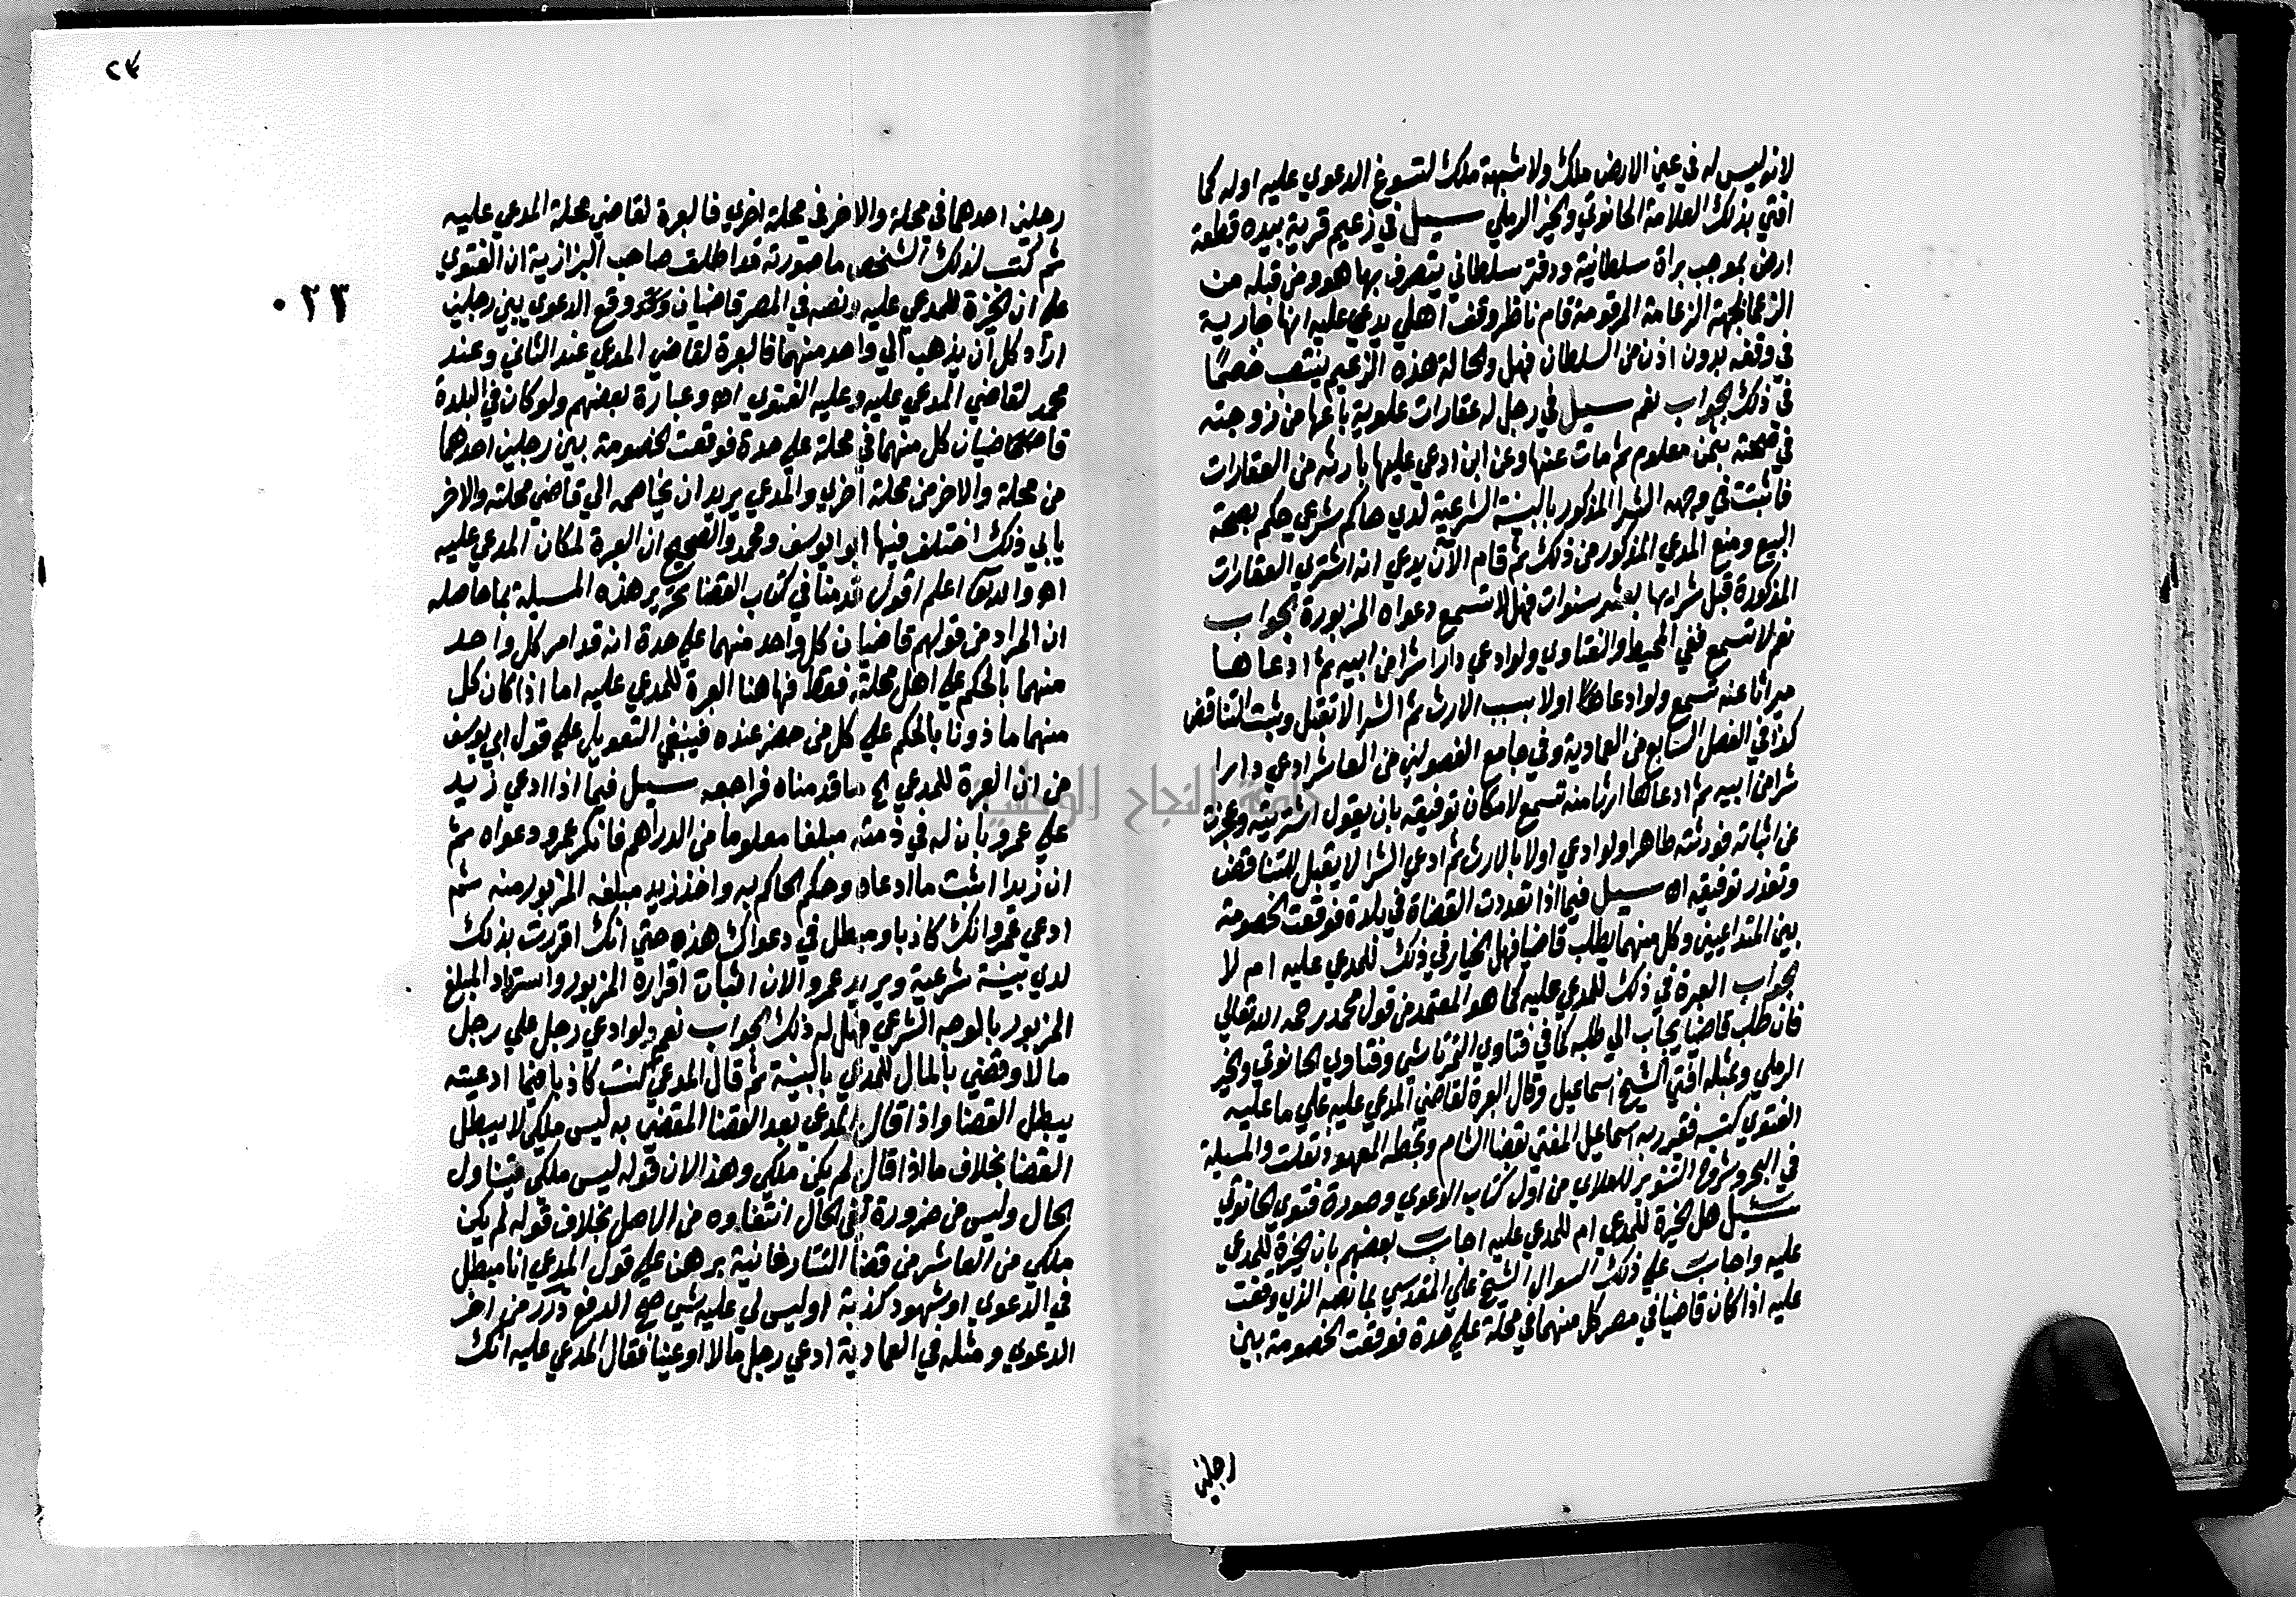 لانه ليس له في عين الارض ملك ولا شبهة ملك لتسوغ الدعوي عليه اوله كما
افتي بذلك العلامة الحانوتي والخير الرملي سيل في زعيم قرية بيده قطعة
ارض بموجب براة سلطانية ودفتر سلطاني يتصرف بها هو ومن قبله من
الزعما بجهة الزعامة المرقومة قام ناظر وقف اهلي يدعي عليه انها جارية
في وقفه بدون اذن من السلطان فهل والحالة هذه الزعيم ينتصب خصمًا
في ذلك الجواب نعم سيل في رجل له عقارات علوية باعها من زوجته
في صحته بثمن معلوم ثم مات عنها وعن ابن ادعي عليها بارثه من العقارات
فاثبتت في وجهه الشرا المذكور بالبينة الشرعية لدي حاكم شرعي حكم بصحة
البيع ومنع المدعي المذكور من ذلك ثم قام الآن يدعي انه اشتري العقارات
المذكورة قبل شرايها بعشر سنوات فهل لا تسمع دعواه المزبورة الجواب
نعم لا تسمع ففي المحيط والفتاوي ولو ادعي دارا شرا من ابيه ثم ادعاها
ميراثا عنه تسمع ولو ادعاها اولا بسبب الارث ثم الشرا لا تقبل ويثبت التناقض
كذا في الفصل السابع من العمادية وفي جامع الفصولين من العاشر ادعي دارا
شرا من ابيه ثم ادعاها ارثا منه تسمع لامكان توفيقه بان يقول اشتريته وعجزت
عن اثباته فورثته ظاهرا ولو ادعي اولا بالارث ثم ادعي الشرا لا يقبل للتناقض
وتعذر توفيقه اه سيل فيما اذا تعددت القضاة في بلدة فوقعت الخصومة
بين المتداعيين وكل منهما يطلب قاضيا فهل الخيار في ذلك للمدعي عليه ام لا
الجواب العبرة في ذلك للمدعي عليه كما هو المعتمد من قول محمد رحمه الله تعالي
فان طلب قاضيا يجاب الي طلبه كما في فتاوي التمرتاشي وفتاوي الحانوتي والخير
الرملي وبمثله افتي الشيخ اسماعيل وقال العبرة لقاضي المدعي عليه علي ما عليه
الفتوي كتبه فقير ربه اسماعيل المفتي بقضا الشام وبخطه المعهود نقلت والمسيلة
في البحر وشرح التنوير للعلاي من اول كتاب الدعوي وصورة فتوي الحانوتي
سيل هل الخيرة للمدعي ام للمدعي عليه اجاب بعضهم بان الخيرة للمدعي
عليه واجاب علي ذلك السوال الشيخ علي المقدسي بما نصه الذي وقفت
عليه اذا كان قاضيا في مصر كل منهما في محلة علي حدة فوقعت الخصومة بين
رجلين
٢٤
٠٢٣
رجلين احدهما في محلة والاخر في محلة اخري فالعبرة لقاضي محلة المدعي عليه
ثم كتب لذلك الشخص ما صورته قد اطلق صاحب البزازية ان الفتوي
علي ان الخيرة للمدعي عليه ونصه في المصر قاضيان وقع الدعوي بين رجلين
اراد كل ان يذهب الي واحد منهما فالعبرة لقاضي المدعي عند الثاني وعند
محمد لقاضي المدعي عليه وعليه الفتوي اه وعبارة بعضهم ولو كان في البلدة
قاضيان كل منهما في محلة علي حدة فوقعت الخصومة بين رجلين احدهما
من محلة والاخر من محلة اخري والمدعي يريد ان يخاصمه الي قاضي محلته والاخر
يابي ذلك اختلف فيها ابو يوسف ومحمد والصحيح ان العبرة لمكان المدعي عليه
اه والله اعلم اقول قدمنا في كتاب القضا تحرير هذه المسيلة بما حاصله
ان المراد من قولهم قاضيان كل واحد منهما علي حدة انه قد امر كل واحد
منهما بالحكم علي اهل محلته فقط فهاهنا العبرة للمدعي عليه اما اذا كان كل
منهما ماذونا بالحكم علي كل من حضر عنده فينبغي التعويل علي قول ابي يوسف
من ان العبرة للمدعي الخ ما قدمناه فراجعه سيل فيما اذا ادعي زيد
علي عمرو بان له في ذمته مبلغا معلوما من الدراهم فانكر عمرو دعواه ثم
ان زيدا اثبت ما ادعاه وحكم الحاكم به واخذ زيد مبلغه المزبور منه ثم
ادعي عمرو انك كاذب او مبطل في دعواك هذه حتي انك اقررت بذلك
لدي بينة شرعية ويريد عمرو الان اثبات اقراره المزبور واسترداد المبلغ
المزبور بالوجه الشرعي فهل له ذلك الجواب نعم ولو ادعي رجل علي رجل
مالا وقضي بالمال للمدعي بالبينة ثم قال المدعي كنت كاذبا فيما ادعيته
يبطل القضا واذا قال المدعي بعد القضا المقضي به ليس ملكي لا يبطل
القضا بخلاف ما اذا قال لم يكن ملكي وهذا لان قوله ليس ملكي يتناول
الحال وليس من ضرورة نفي الحال انتفاوه من الاصل بخلاف قوله لم يكن
ملكي من العاشر من قضا التتارخانية برهن علي قول المدعي انا مبطل
في الدعوي او شهود كذبة او ليس لي عليه شي صح الدفع درر من اخر
الدعوي ومثله في العمادية ادعي رجل مالا او عينا فقال المدعي عليه انك
جامعة النجاح الوطنية